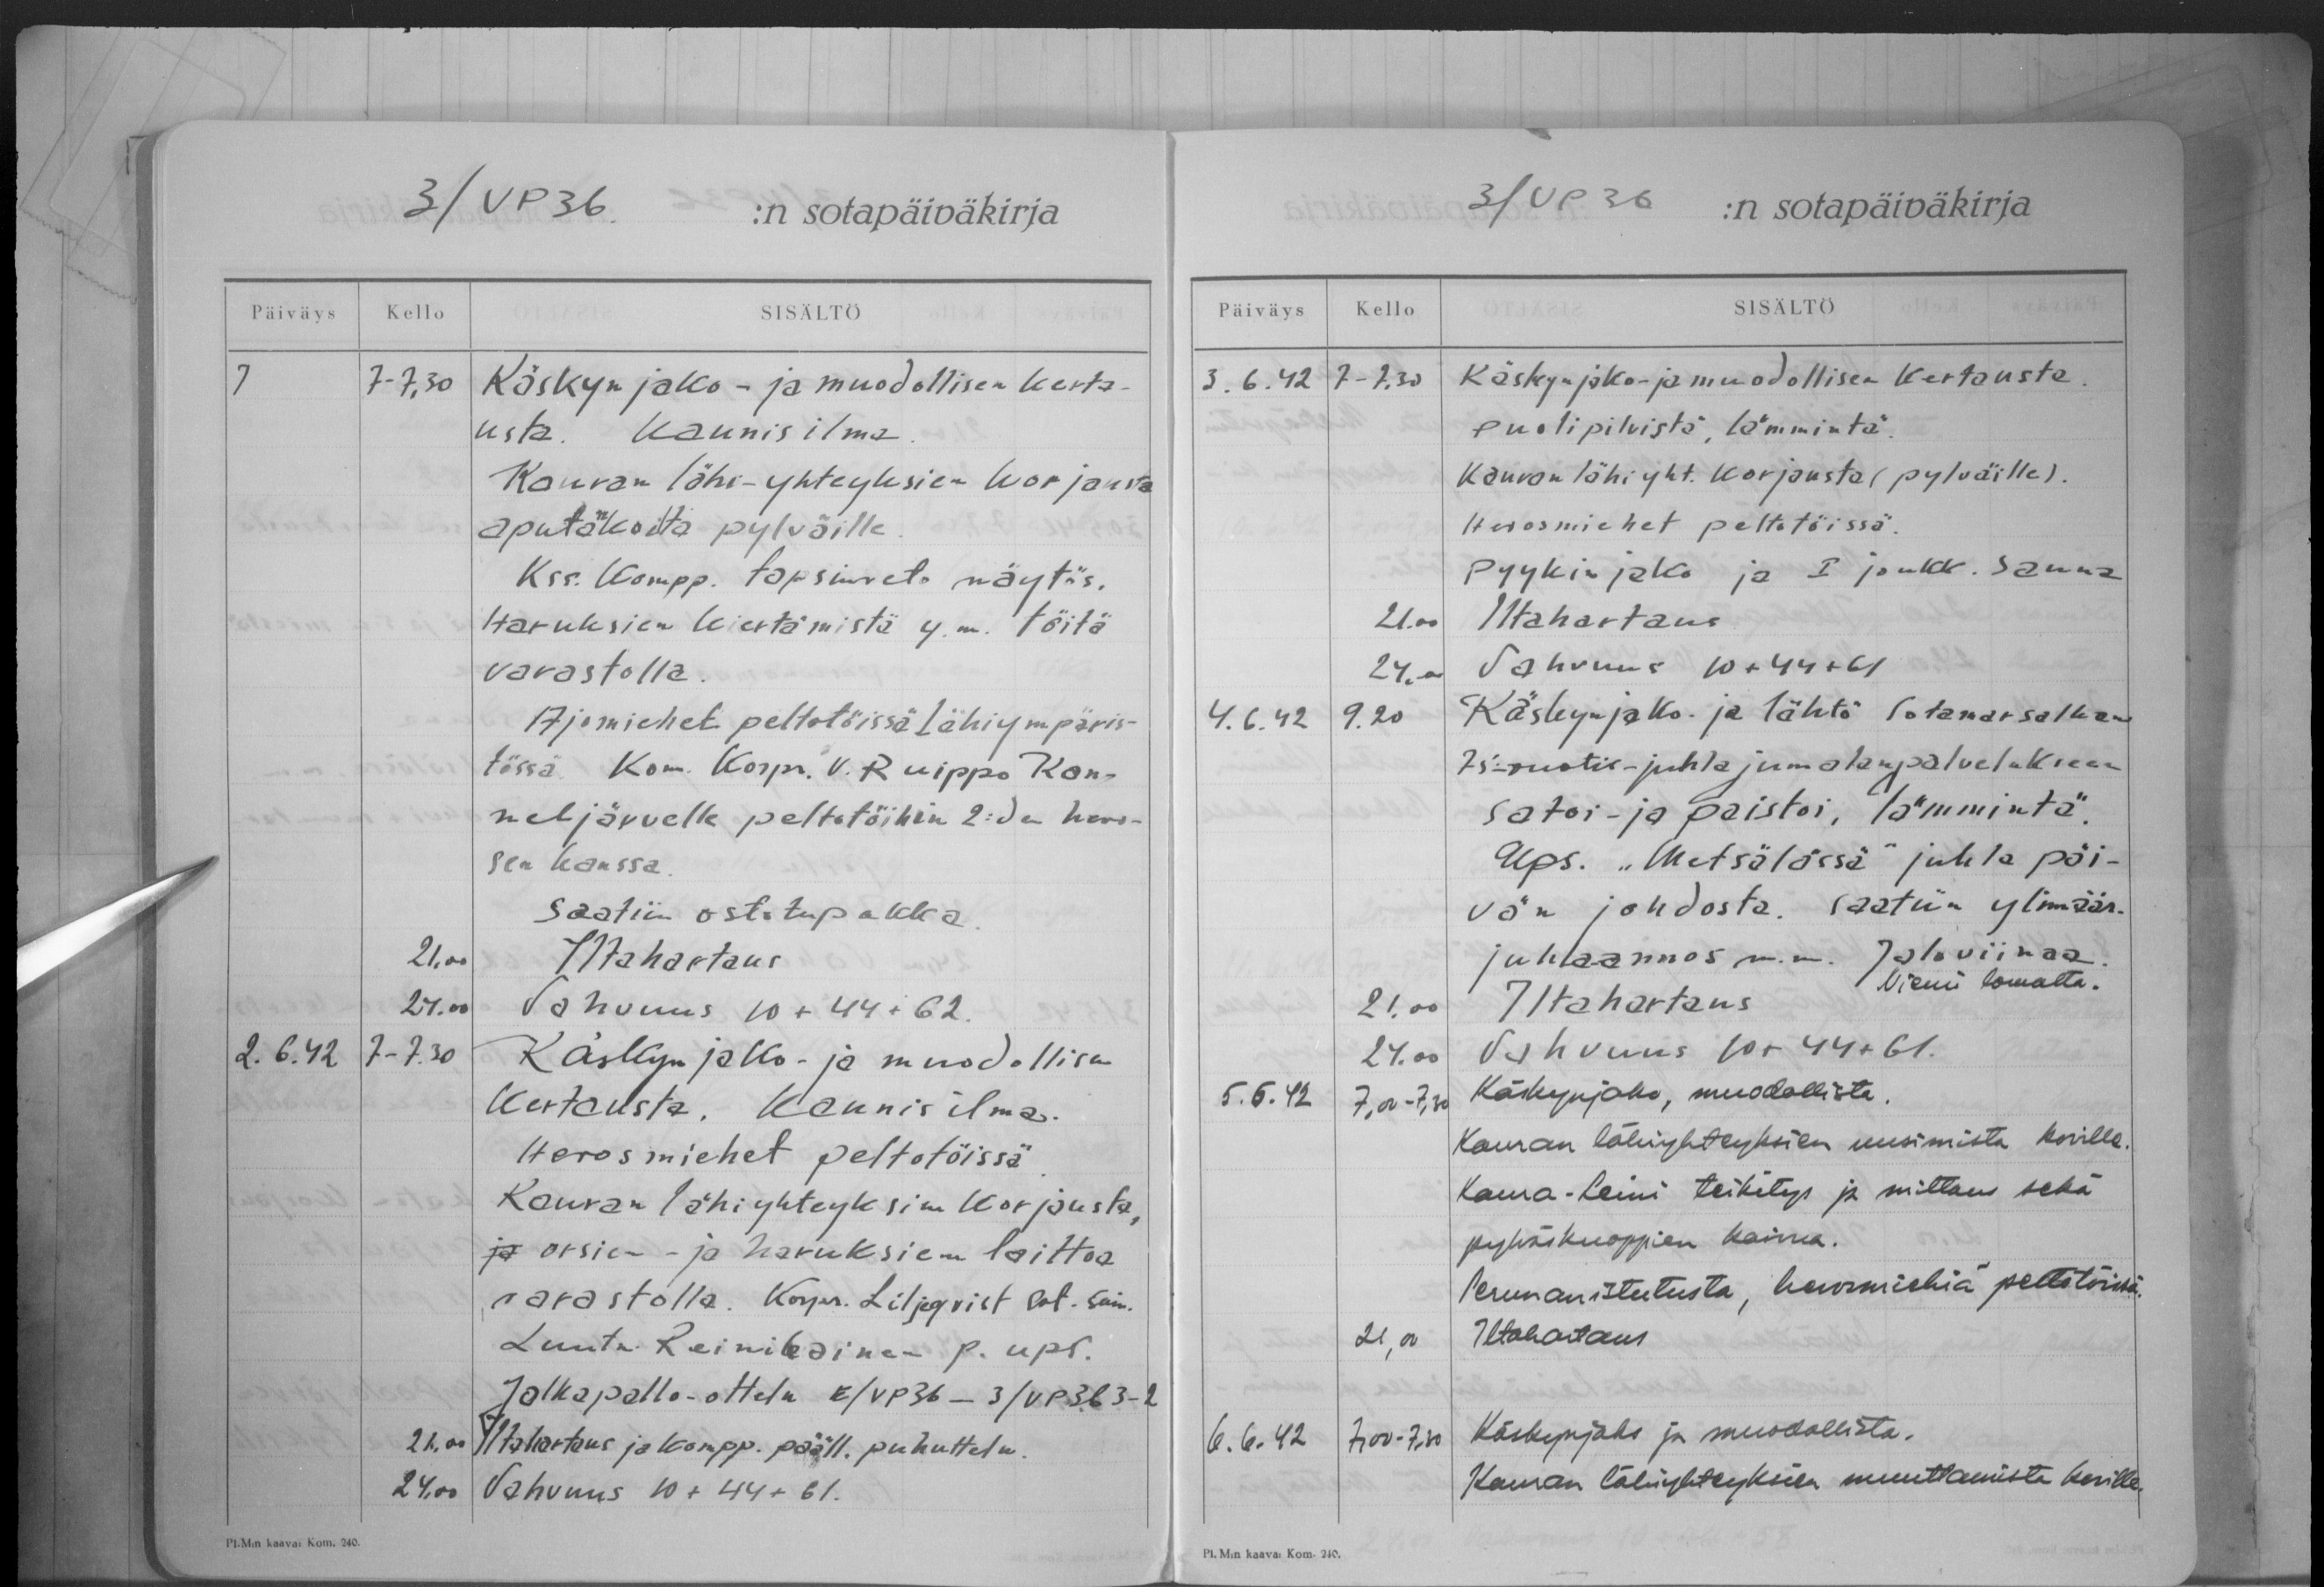 3/VP36. :n sotapäiväkirja
Päiväys Kello SISÄLTÖ
7 7-7,30 Käskyn jako - ja muodollisen kerta-
usta. Kaunis ilma.
Kauran lähi-yhteyksien korjausta
pylväille.
Kss. Kompp. näytös.
Haruksien kiertämistä y.m. töitä
varastolla.
Ajomiehet peltotöissä lähiympäris-
tössä. Kom. Korpr. V. Ruippo Kan-
neljärvelle peltotöihin 2:den hevo-
sen kanssa.
Saatiin
21,00 Iltahartaus
24.00 Vahvuus 10 + 44 + 62.
2. 6.42 7-7.30 Käskyn jako - ja muodollisen
Kertausta. Kaunis ilma.
Hevosmiehet peltotöissä.
Kauran lähiyhteyksien korjausta,
ja orsien - ja haruksien laittoa
varastolla. Korpr. Liljeqvist sot. sair.
Luutn. Reinikainen p. ups.
Jalkapallo-ottelu E/VP36 - 3/VP36 3-2
21,00 Iltahartaus ja kompp. pääll. puhuttelu.
24,00 Vahvuus 10 + 44 + 61.
Pl.Min kaava: Kom. 240.
3/VP 36 :n sotapäiväkirja
Päiväys Kello SISÄLTÖ
3.6.42 7-7.30 Käskynjako- ja muodollisen Kertausta.
Puolipilvistä, lämmintä.
Kauran lähiyht. korjausta (pylväille).
Hevosmiehet peltotöissä.
Pyykin jako ja I joukk. sauna
21.00 Iltahartaus
24.00 Vahvuus 10+44+61
4.6.42 9.20 Käskynjako- ja lähtö Sotamarsalkan
75-vuotis-juhlajumalanpalvelukseen
Satoi- ja paistoi, lämmintä.
Ups. "Metsälässä" juhla päi-
vän johdosta. Saatiin ylimäär.
juhla-annos m.m. Jaloviinaa.
Niemi lomalta.
21.00 Iltahartaus
24.00 Vahvuus 10+ 44+61.
5.6.42 7,00-7,30 Käskynjako, muodollista.
Kauran lähiyhteyksien uusimista
Kaura-Leini teihitys ja mittaus sekä
pylväskuoppien kaivua.
Perunanistutusta, hevosmiehiä peltotöissä.
21,00 Iltahartaus
6.6.42 7,00-7,30 Käskynjako ja muodollista.
Kauran lähiyhteyksien muuttamista
Pl.Min kaava: Kom. 240.